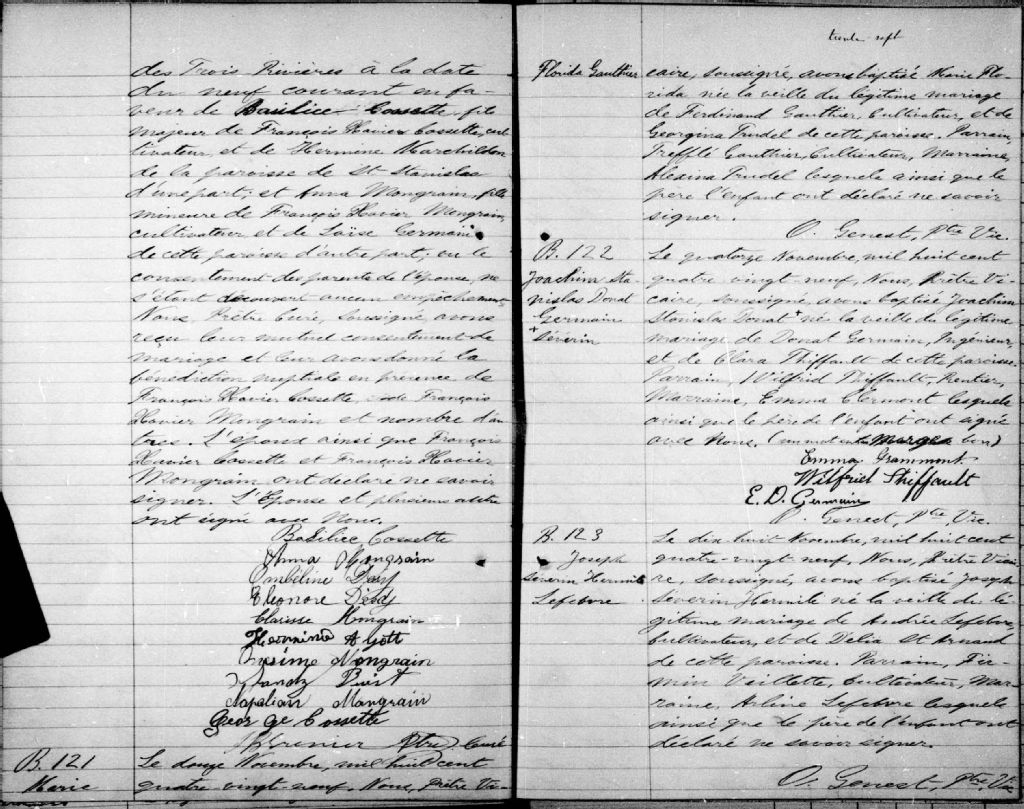 des Trois Rivières à la date
du neuf courant en fa-
veur de Basilice Cossette, fils
majeur de François Xavier Cossette, cul
tivateur, et de Hermine Marchildon
de la paroisse de St Stanislas
d'une part; et Anna Mongrain, fille
mineure de François Xavier Mongrain,
cultivateur et de Luise Germain
de cette paroisse d'autre part; vu le
consentement des parents de l'épouse, ne
s'étant découvert aucun empêchement
Nous, Prêtre Curé, soussigné avons
reçu leur mutuel consentement de
mariage et leur avons donné la
bénédiction nuptiale en présence de
François Xavier Cossette, de François
Xavier Mongrain et nombre d'au
tres. L'époux ainsi que François
Xavier Cossette et François Xavier
Mongrain ont déclaré ne savoir
signer. L'Epouse et plusieurs autre
ont signé avec Nous.
Basilice Cossette
Anna Mongrain
Ombéline Dessy
Eleonore Dessy
Clarisse Mongrain
Hermine Ayott
Onésime Mongrain
Napoléan Mongrain
George Cossette
Ptre, Curé
B. 121
Marie
Le douze Novembre, mil huit cent
quatre-vingt-neuf, Nous, Prêtre Vi-
trente sept
Florida Gauthier
caire, soussigné, avons baptisé Marie Flo-
rida née la veille du légitime mariage
de Ferdinand Gauthier, Cultivateur, et de
Georgina Trudel de cette paroisse. Parrain,
Trefflé Gauthier, Cultivateur, Marraine,
Alexina Trudel lesquels ainsi que le
père l'enfant ont déclaré ne savoir
signer.
O. Genest, Ptre Vic.
B. 122
Joachim Sta-
nislas Donat
Germain
+ Séverin
Le quatorze Novembre, mil huit cent
quatre vingt-neuf, Nous, Prêtre Vi-
caire, soussigné, avons baptisé Joachim
Stanislas Donat + né la veille du légitime
mariage de Donat Germain, Ingénieur,
et de Clara Thiffault de cette paroisse.
Parrain, Wilfrid Thiffault, Rentier,
Marraine, Emma Clermont lesquels
ainsi que le père de l'enfant ont signé
avec Nous. (un mot en Marge bon)
Emma Grammont
Wilfried Thiffault
E. D. Germain
O. Genest, Ptre, Vic.
B. 123
Joseph
Séverin Hermile
Lefebvre
Le dix-huit Novembre, mil huit cent
quatre-vingt-neuf, Nous, Prêtre Vicai-
re, soussigné, avons baptisé Joseph
Séverin Hermile né la veille du lé-
gitime mariage de Andrée Lefebvre,
Cultivateur, et de Délia St Arnaud
de cette paroisse. Parrain, Fir-
min Veillette, Cultivateur, Mar-
raine, Arline Lefebvre lesquels
ainsi que le père de l'enfant ont
déclaré ne savoir signer.
O. Genest, Ptre Vic